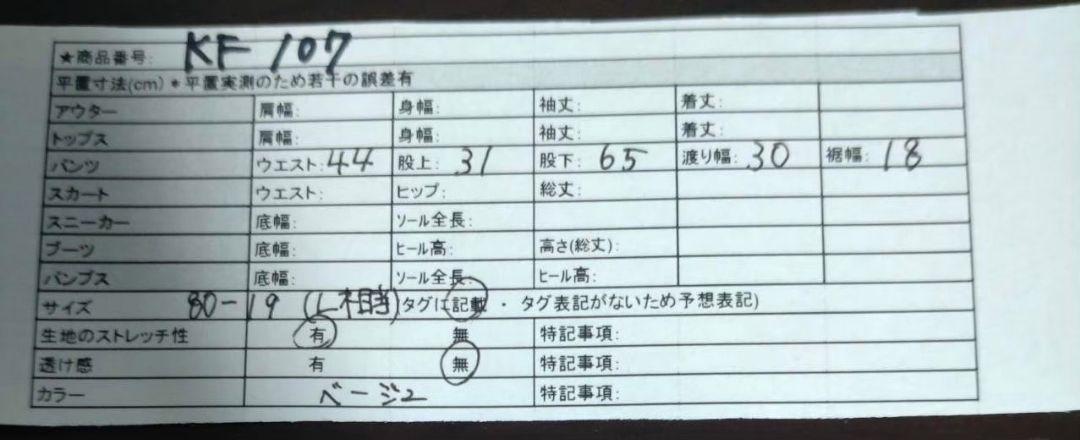 ★商品番号: KF 107
平置寸法(cm) * 平置実測のため若干の誤差有
アウター 肩幅: 身幅: 袖丈: 着丈:
トップス 肩幅: 身幅: 袖丈: 着丈:
パンツ ウエスト: 44 股上: 31 股下: 65 渡り幅: 30 裾幅: 18
スカート ウエスト: ヒップ: 総丈:
スニーカー 底幅: ソール全長:
ブーツ 底幅: ヒール高: 高さ(総丈):
パンプス 底幅: ソール全長: ヒール高:
サイズ 80-19 (L相当) タグに記載 ・ タグ表記がないため予想表記)
生地のストレッチ性 有 無 特記事項:
透け感 有 無 特記事項:
カラー ベージュ 特記事項: